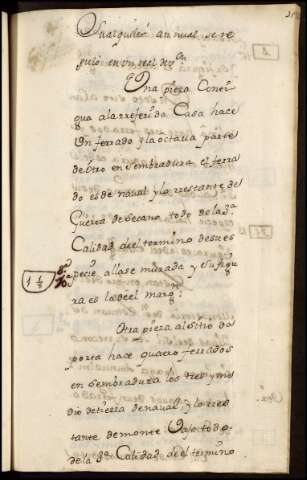 Su alquiler annual se re
guló en un real de v.on
Una pieza Conti
gua ala rreferida Casa hace
Un ferrado y la octava parte
de otro en sembradura el ferra
do es de naval y lo rrestante de
Guerta de secano todo de la 2.a
Calidad del termino de su es
pecie allase murada y su figu
ra es la del el marg.n
1 1/8
Otra pieza al sitio da
porta hace quatro ferrados
en sembradura los tres y me
dio de tierra de naval y lo rres
tante de monte Vajo todo
de la 2.a Calidad de el termino